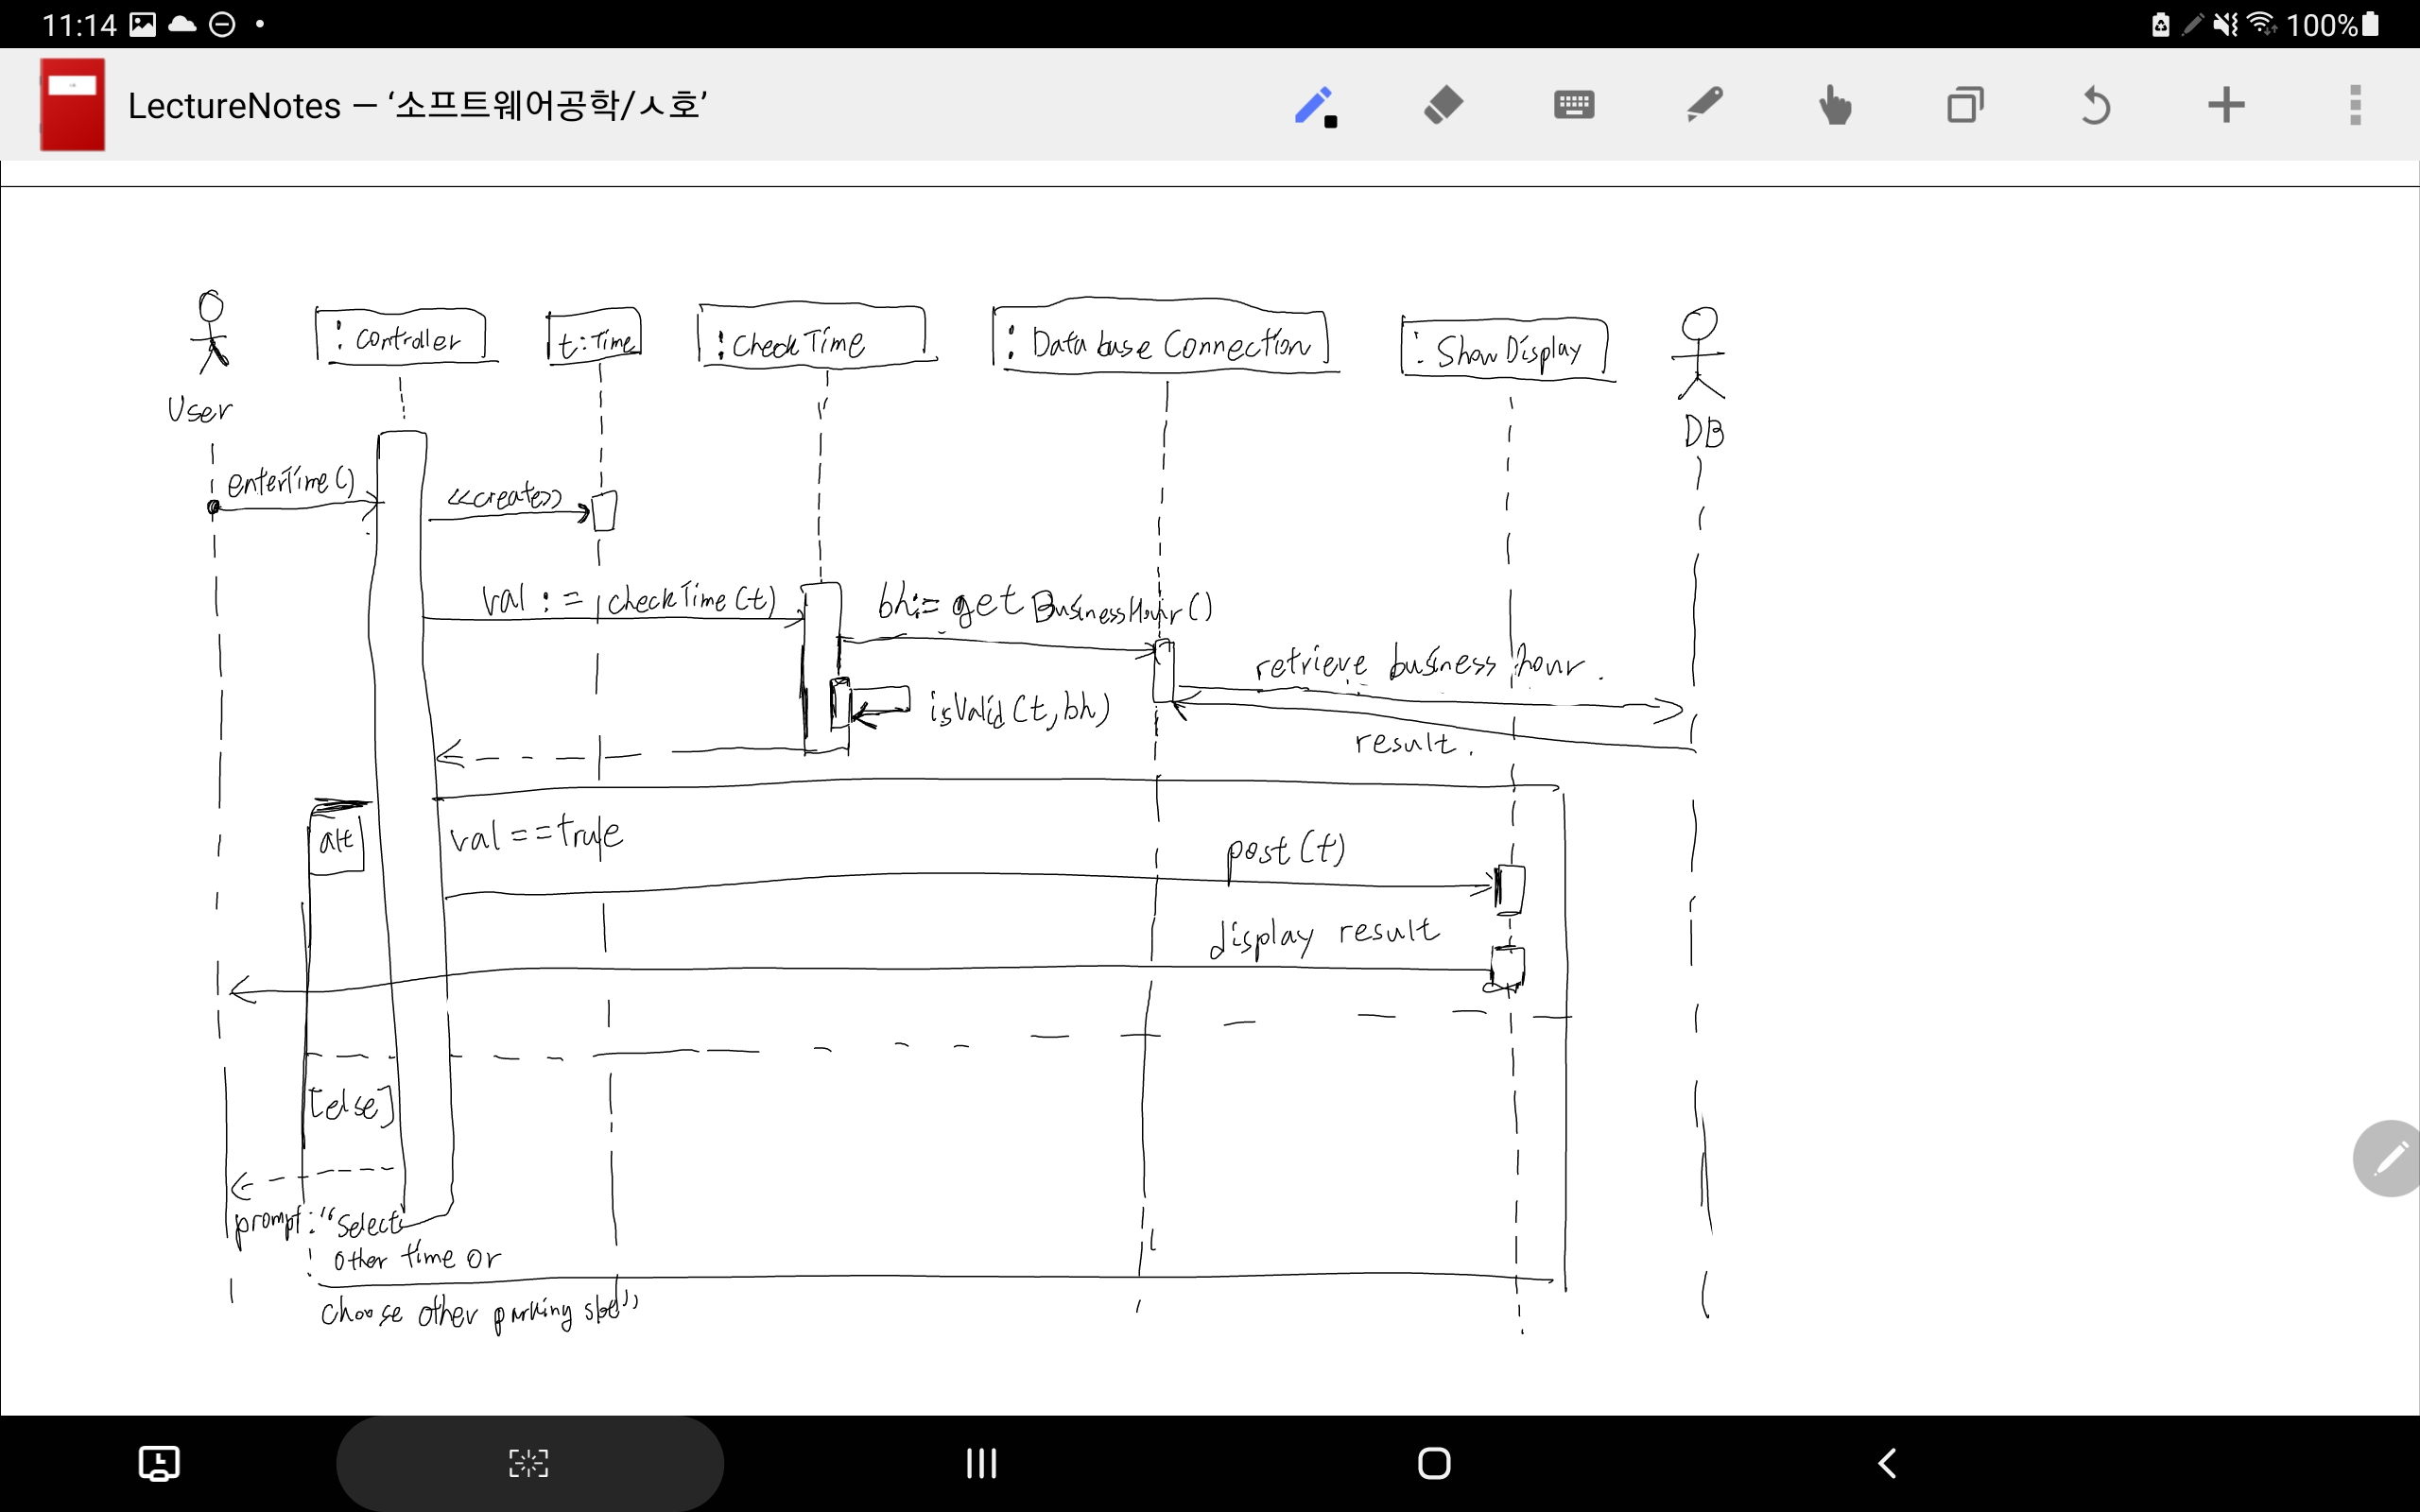 11:14
100%
LectureNotes — ‘소프트웨어공학/ㅅ호’
User
: Controller
t:Time
: CheckTime
: Database Connection
: ShowDisplay
DB
enterTime()
<<create>>
val := checkTime(t)
bh:= getBusinessHour()
retrieve business hour.
isValid(t,bh)
result.
alt
val==true
post(t)
display result
[else]
prompt: "Select
other time or
choose other parking